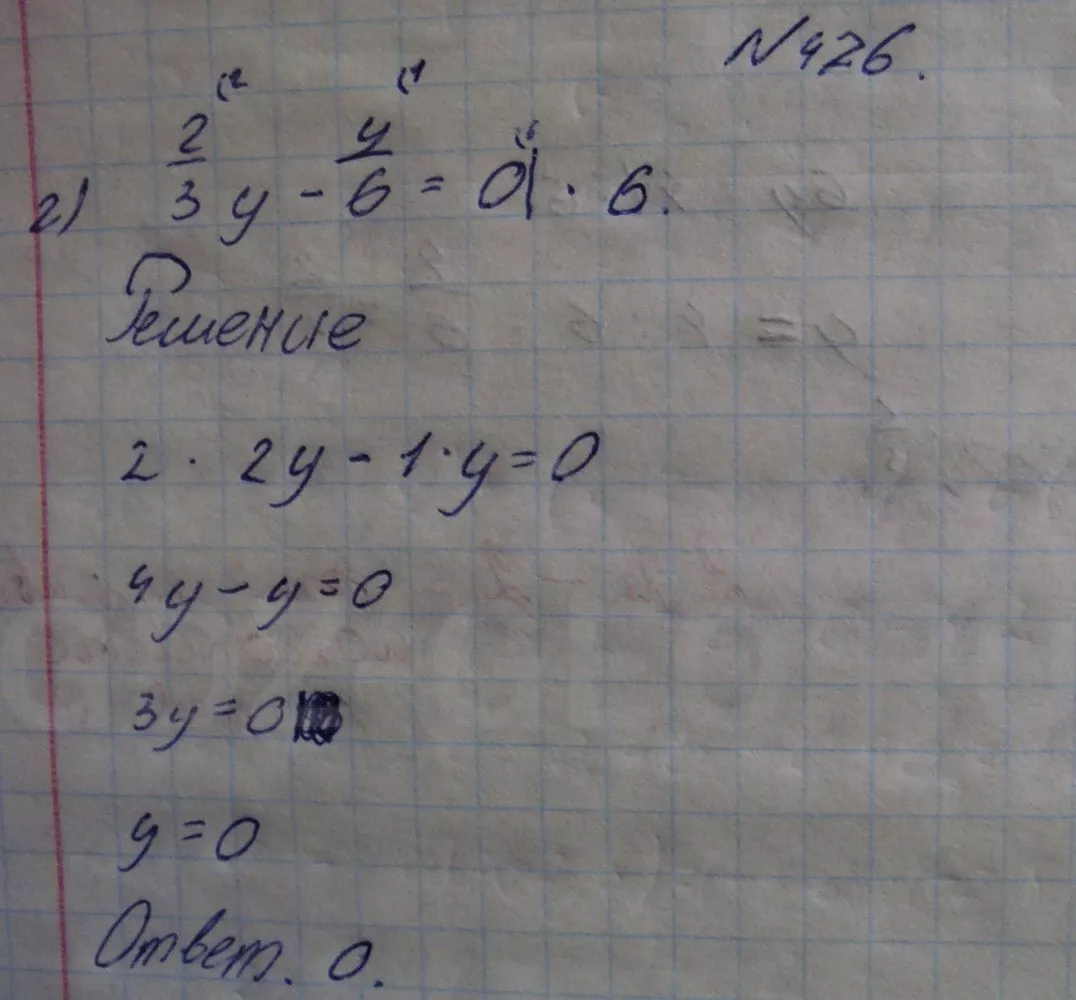 №426.
г) 2/3 y - y/6 = 0 | · 6.
Решение
2 · 2y - 1 · y = 0
4y - y = 0
3y = 0
y = 0
Ответ. 0.